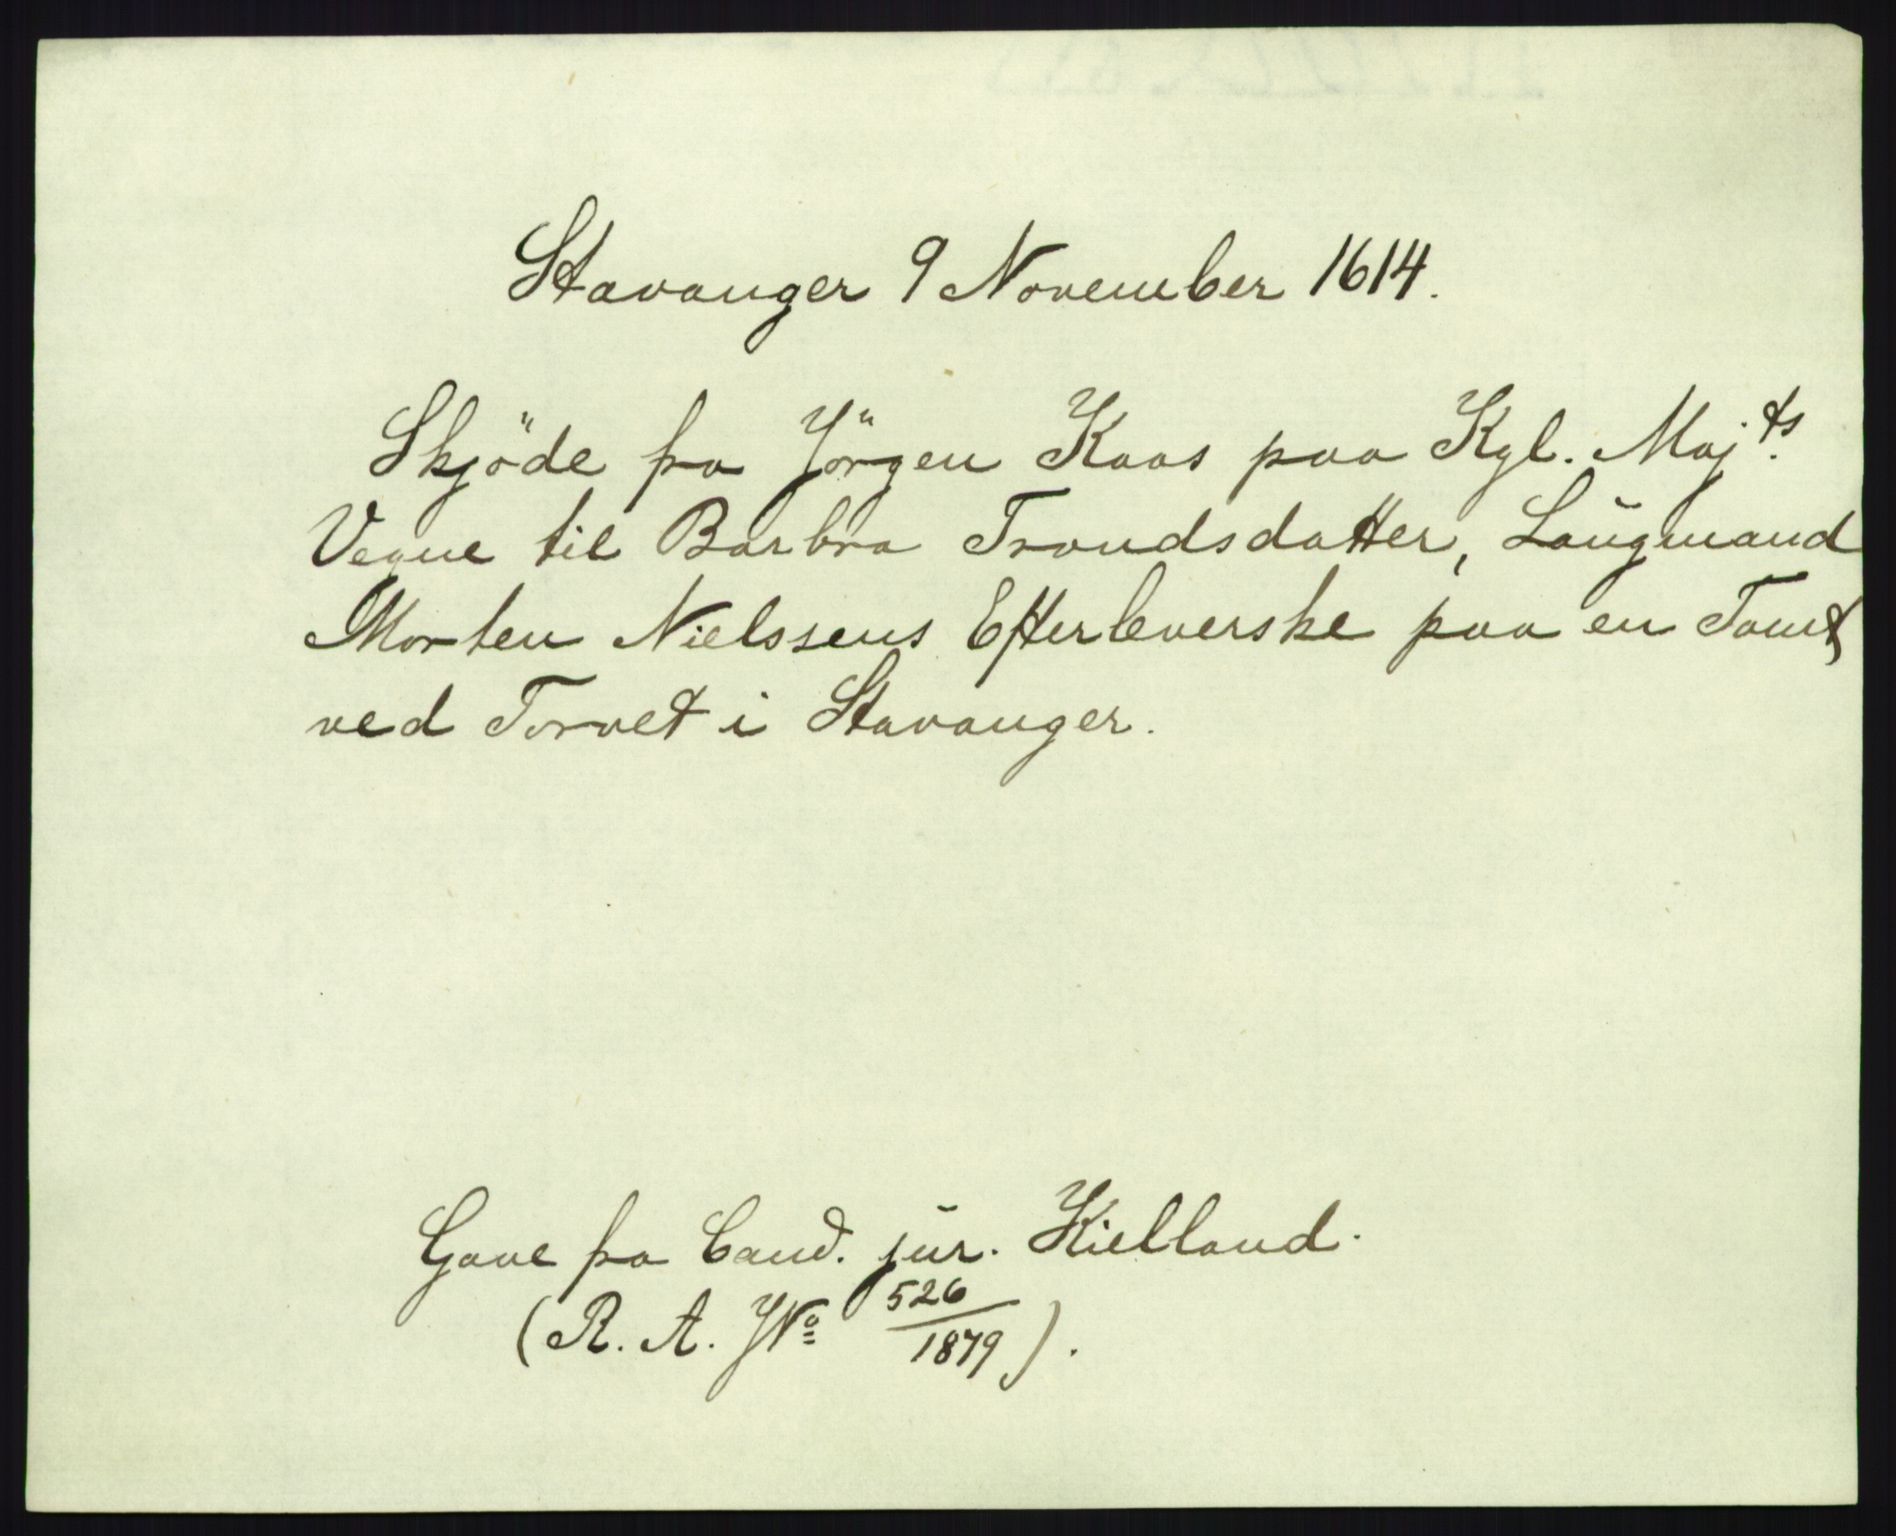 Stavanger 9 November 1614.
Skjöde fra Jörgen Kaas paa Kgl. Maj.ts
Vegne til Barbra Trondsdatter, Laugmand
Morten Nielssens Efterleverske paa en Tomt
ved Torvet i Stavanger.
Gave fra Cand. jur. Kielland.
(R. A. JNo 526/1879).